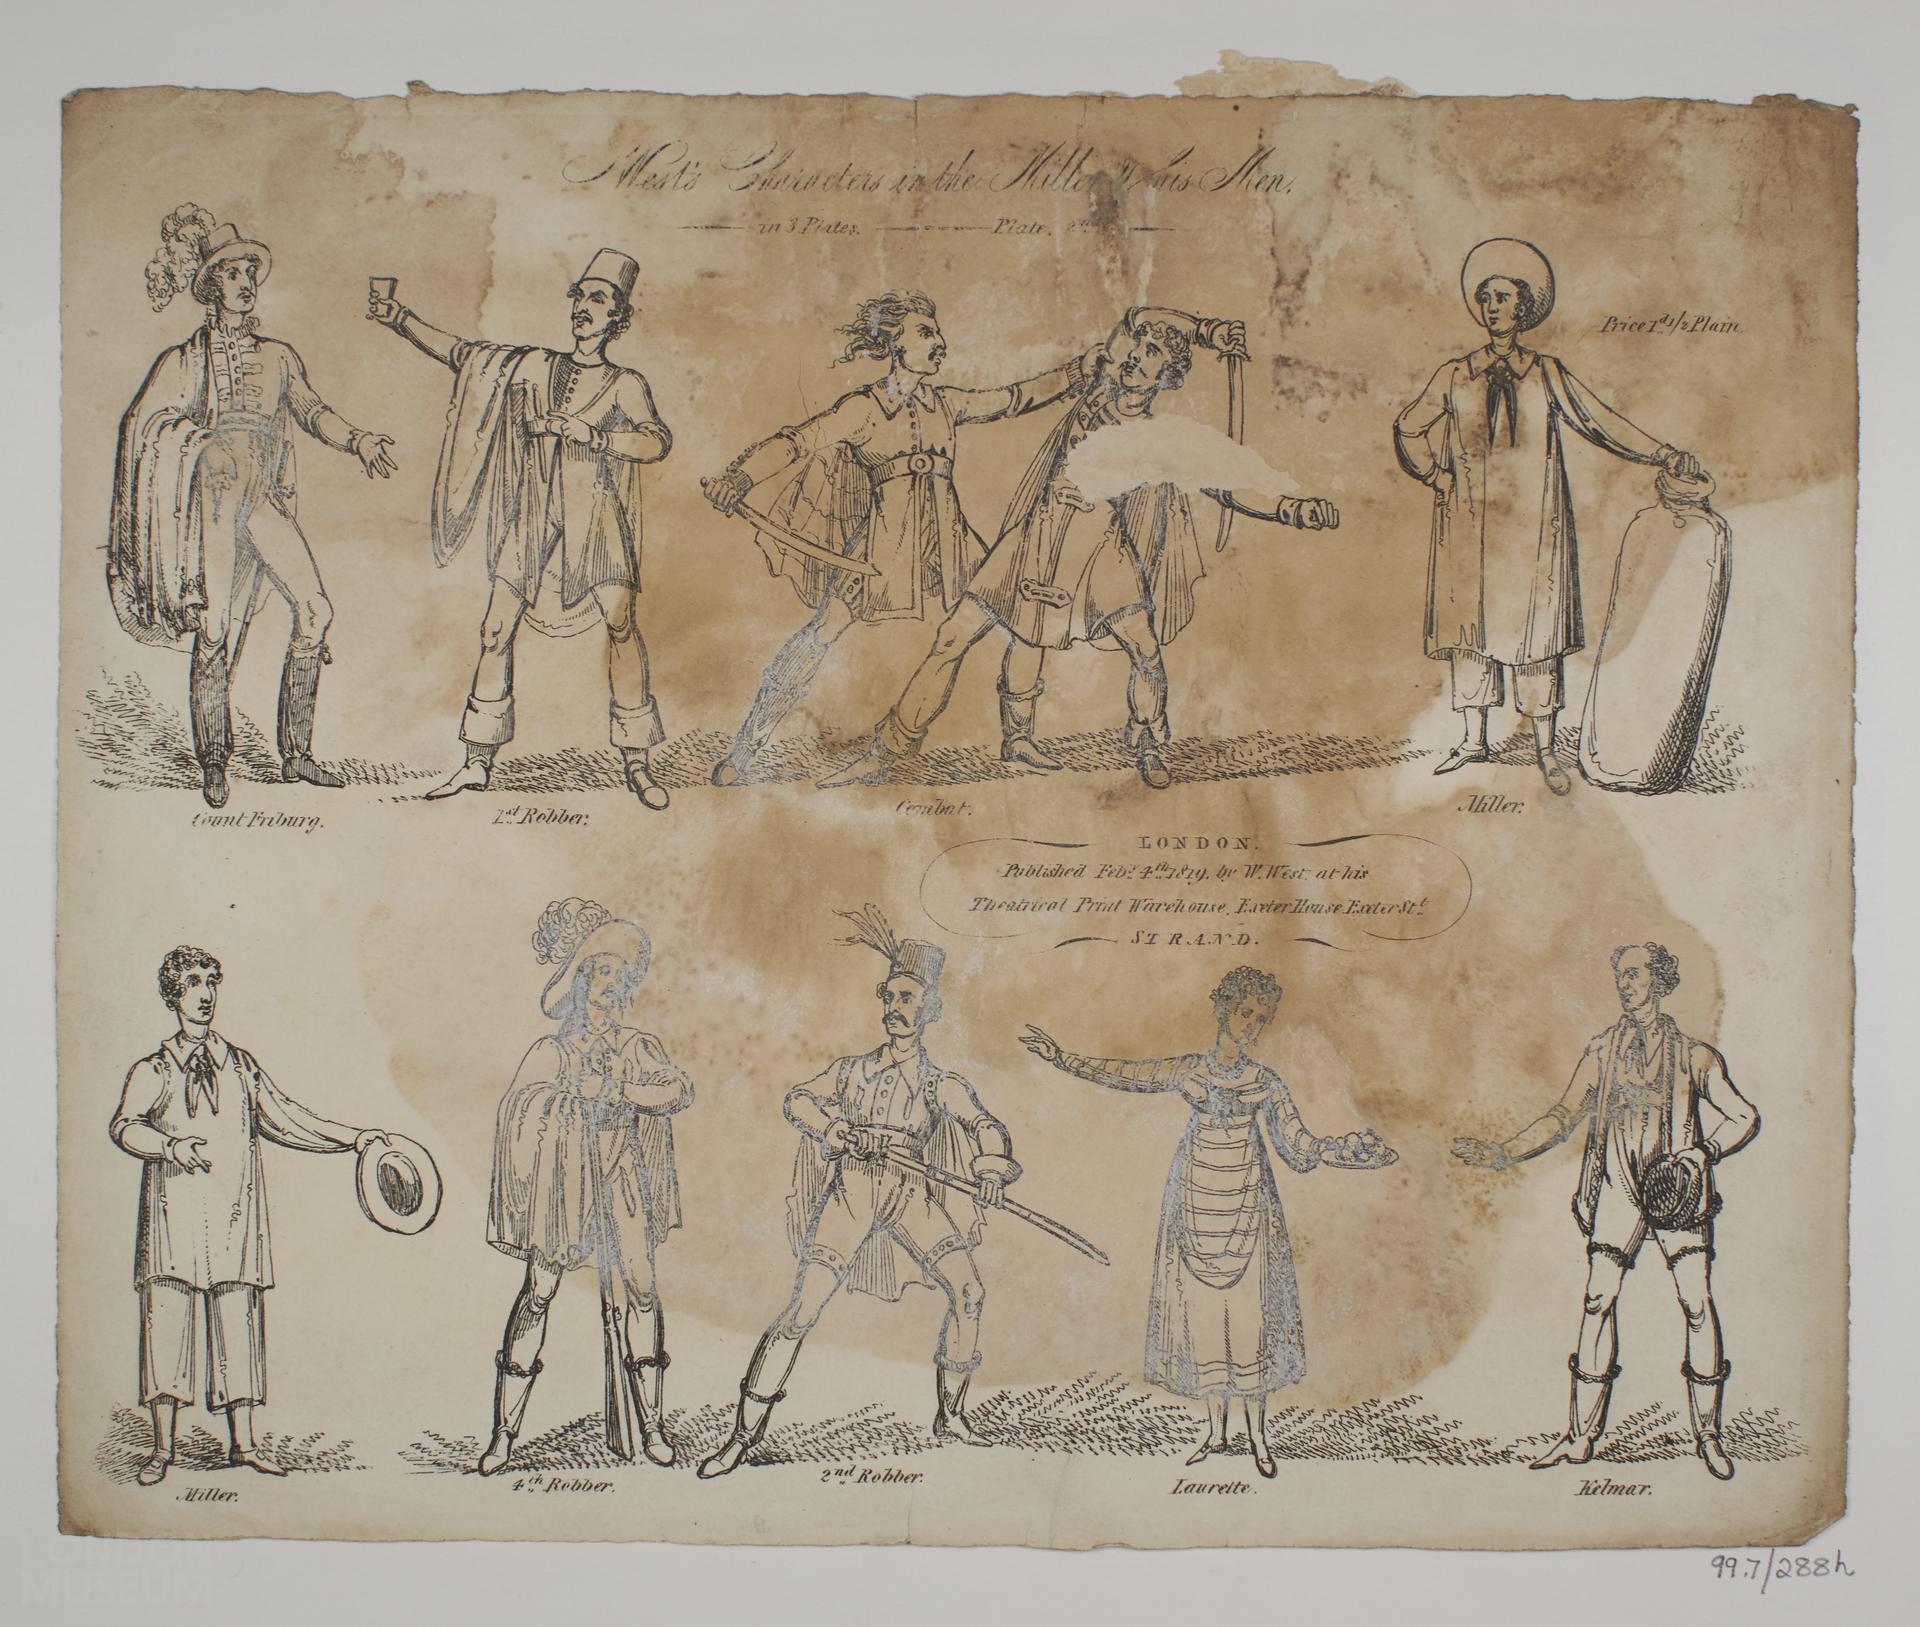 West's Characters in the Miller & his Men.
in 3 Plates. Plate.
Price 1d 1/2 Plain
Count Friburg.
1st Robber.
Combat.
Miller.
LONDON.
Published Feby. 4th 1819. by W. West. at his
Theatrical Print Warehouse. Exeter House Exeter Stt
STRAND.
Miller.
4th Robber.
2nd Robber.
Laurette.
Kelmar.
LONDON
MUSEUM
99.7/288h